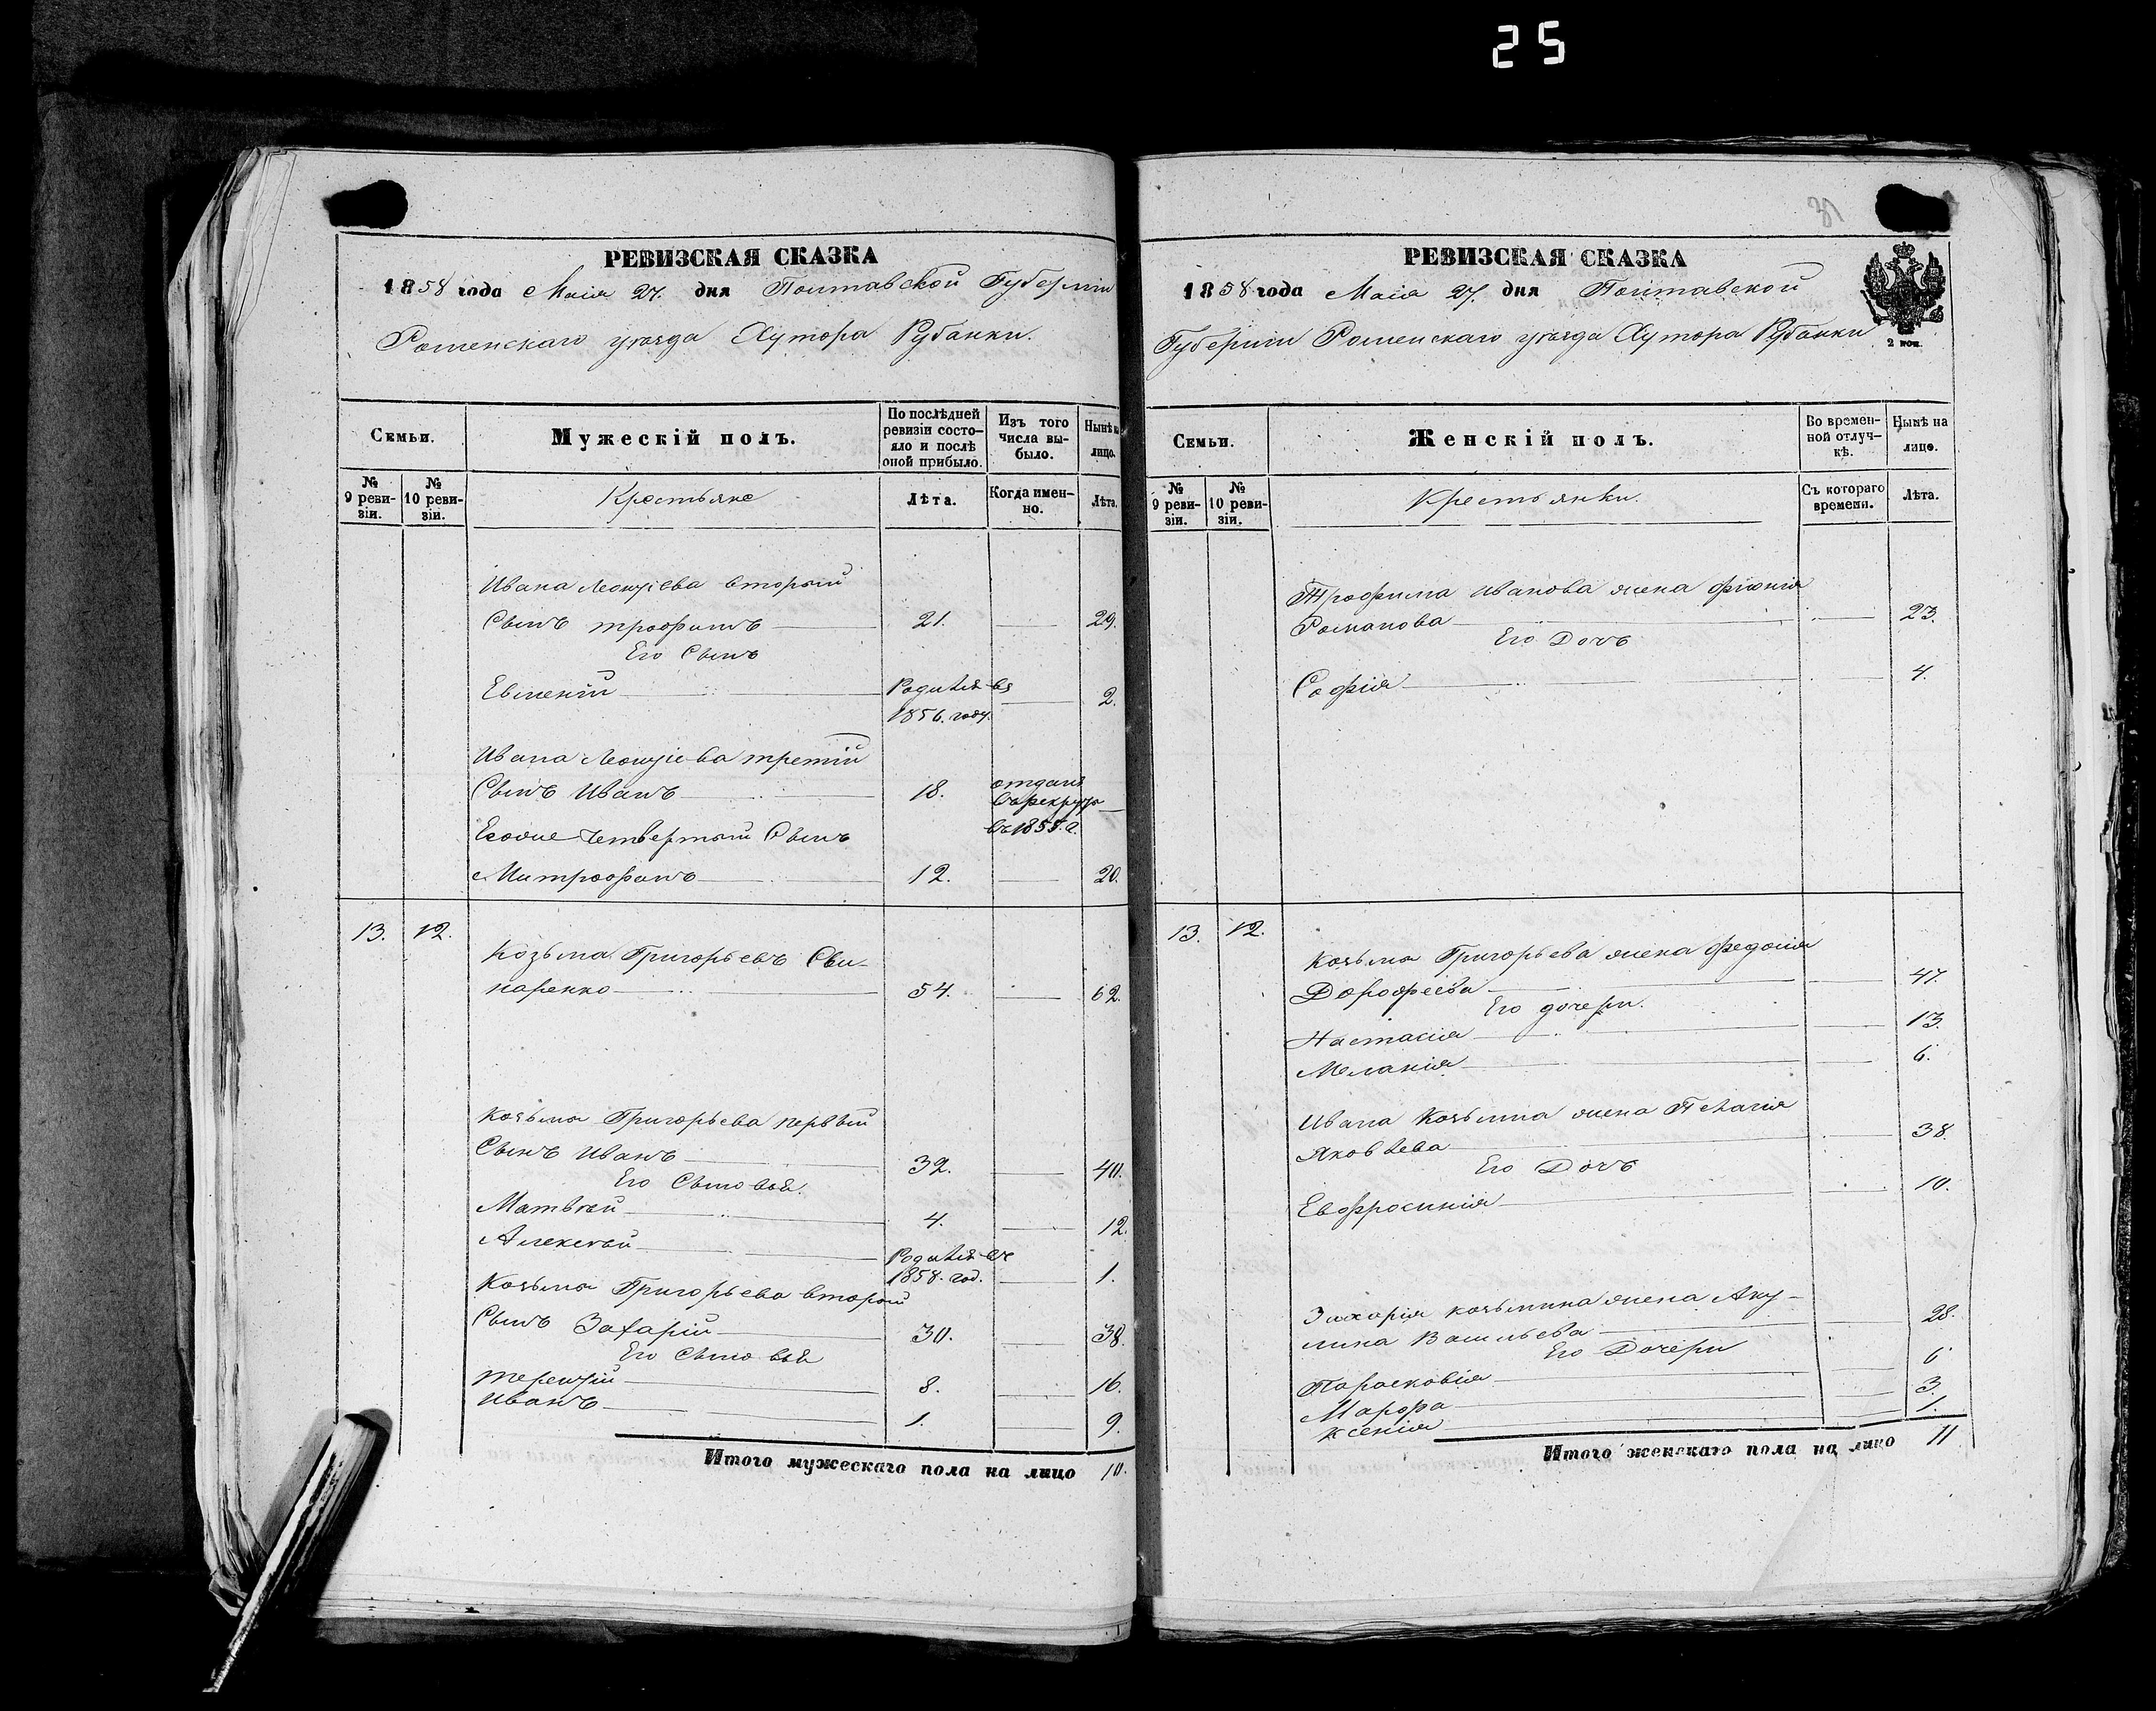 25
РЕВИЗСКАЯ СКАЗКА
1858 года Маія 27. дня Полтавской Губерніи
Роменскаго уѣзда Хутора Рубанки.
Семьи.
Мужескій полъ.
По послѣдней ревизіи состояло и послѣ оной прибыло.
Изъ того числа выбыло.
Нынѣ на лицо.
№ 9 ревизіи.
№ 10 ревизіи.
Крестьяне
Лѣта.
Когда именно.
Лѣта.
Ивана Леонтіева вторый
Сынъ трофимъ 21. 29.
Его Сынъ
Евменій Родился въ 1856. году. 2.
Ивана Леонтіева третій
Сынъ Иванъ 18. отданъ въ рекруты
Егоже Четвертый Сынъ
Митрофанъ 12. 20.
13. 12.
Козьма Григорьевъ Сви-
наренко 54. 62.
Козьмы Григорьева первый
Сынъ Иванъ 32. 40.
Его Сыновья.
Матвѣй 4. 12.
Алексѣй Родился въ 1858. год. 1.
Козьмы Григорьева второй
Сынъ Захарій 30. 38.
Его Сыновья
терентій 8. 16.
Иванъ 1. 9.
Итого мужескаго пола на лицо 10.
31
РЕВИЗСКАЯ СКАЗКА
1858 года Маія 27. дня Полтавской
Губерніи Роменскаго уѣзда Хутора Рубанки
2 коп.
Семьи.
Женскій полъ.
Во временной отлучкѣ.
Нынѣ на лицо.
№ 9 ревизіи.
№ 10 ревизіи.
Крестьянки.
Съ котораго времени.
Лѣта.
Трофима Иванова жена
Романова 23.
Его Дочь
Софія 4.
13. 12.
Козьмы Григорьева жена федосія
Дорофеева 47.
Его дочери.
Настасія 13.
Меланія 6.
Ивана Козьмина жена Пелагія
Яковлева 38.
Его Дочь
Евфросинія 10.
Захарія козьмина жена Аку-
лина Васильева 28.
Его Дочери
Парасковія 6
Марфа 3.
Ксенія 1.
Итого женскаго пола на лицо 11